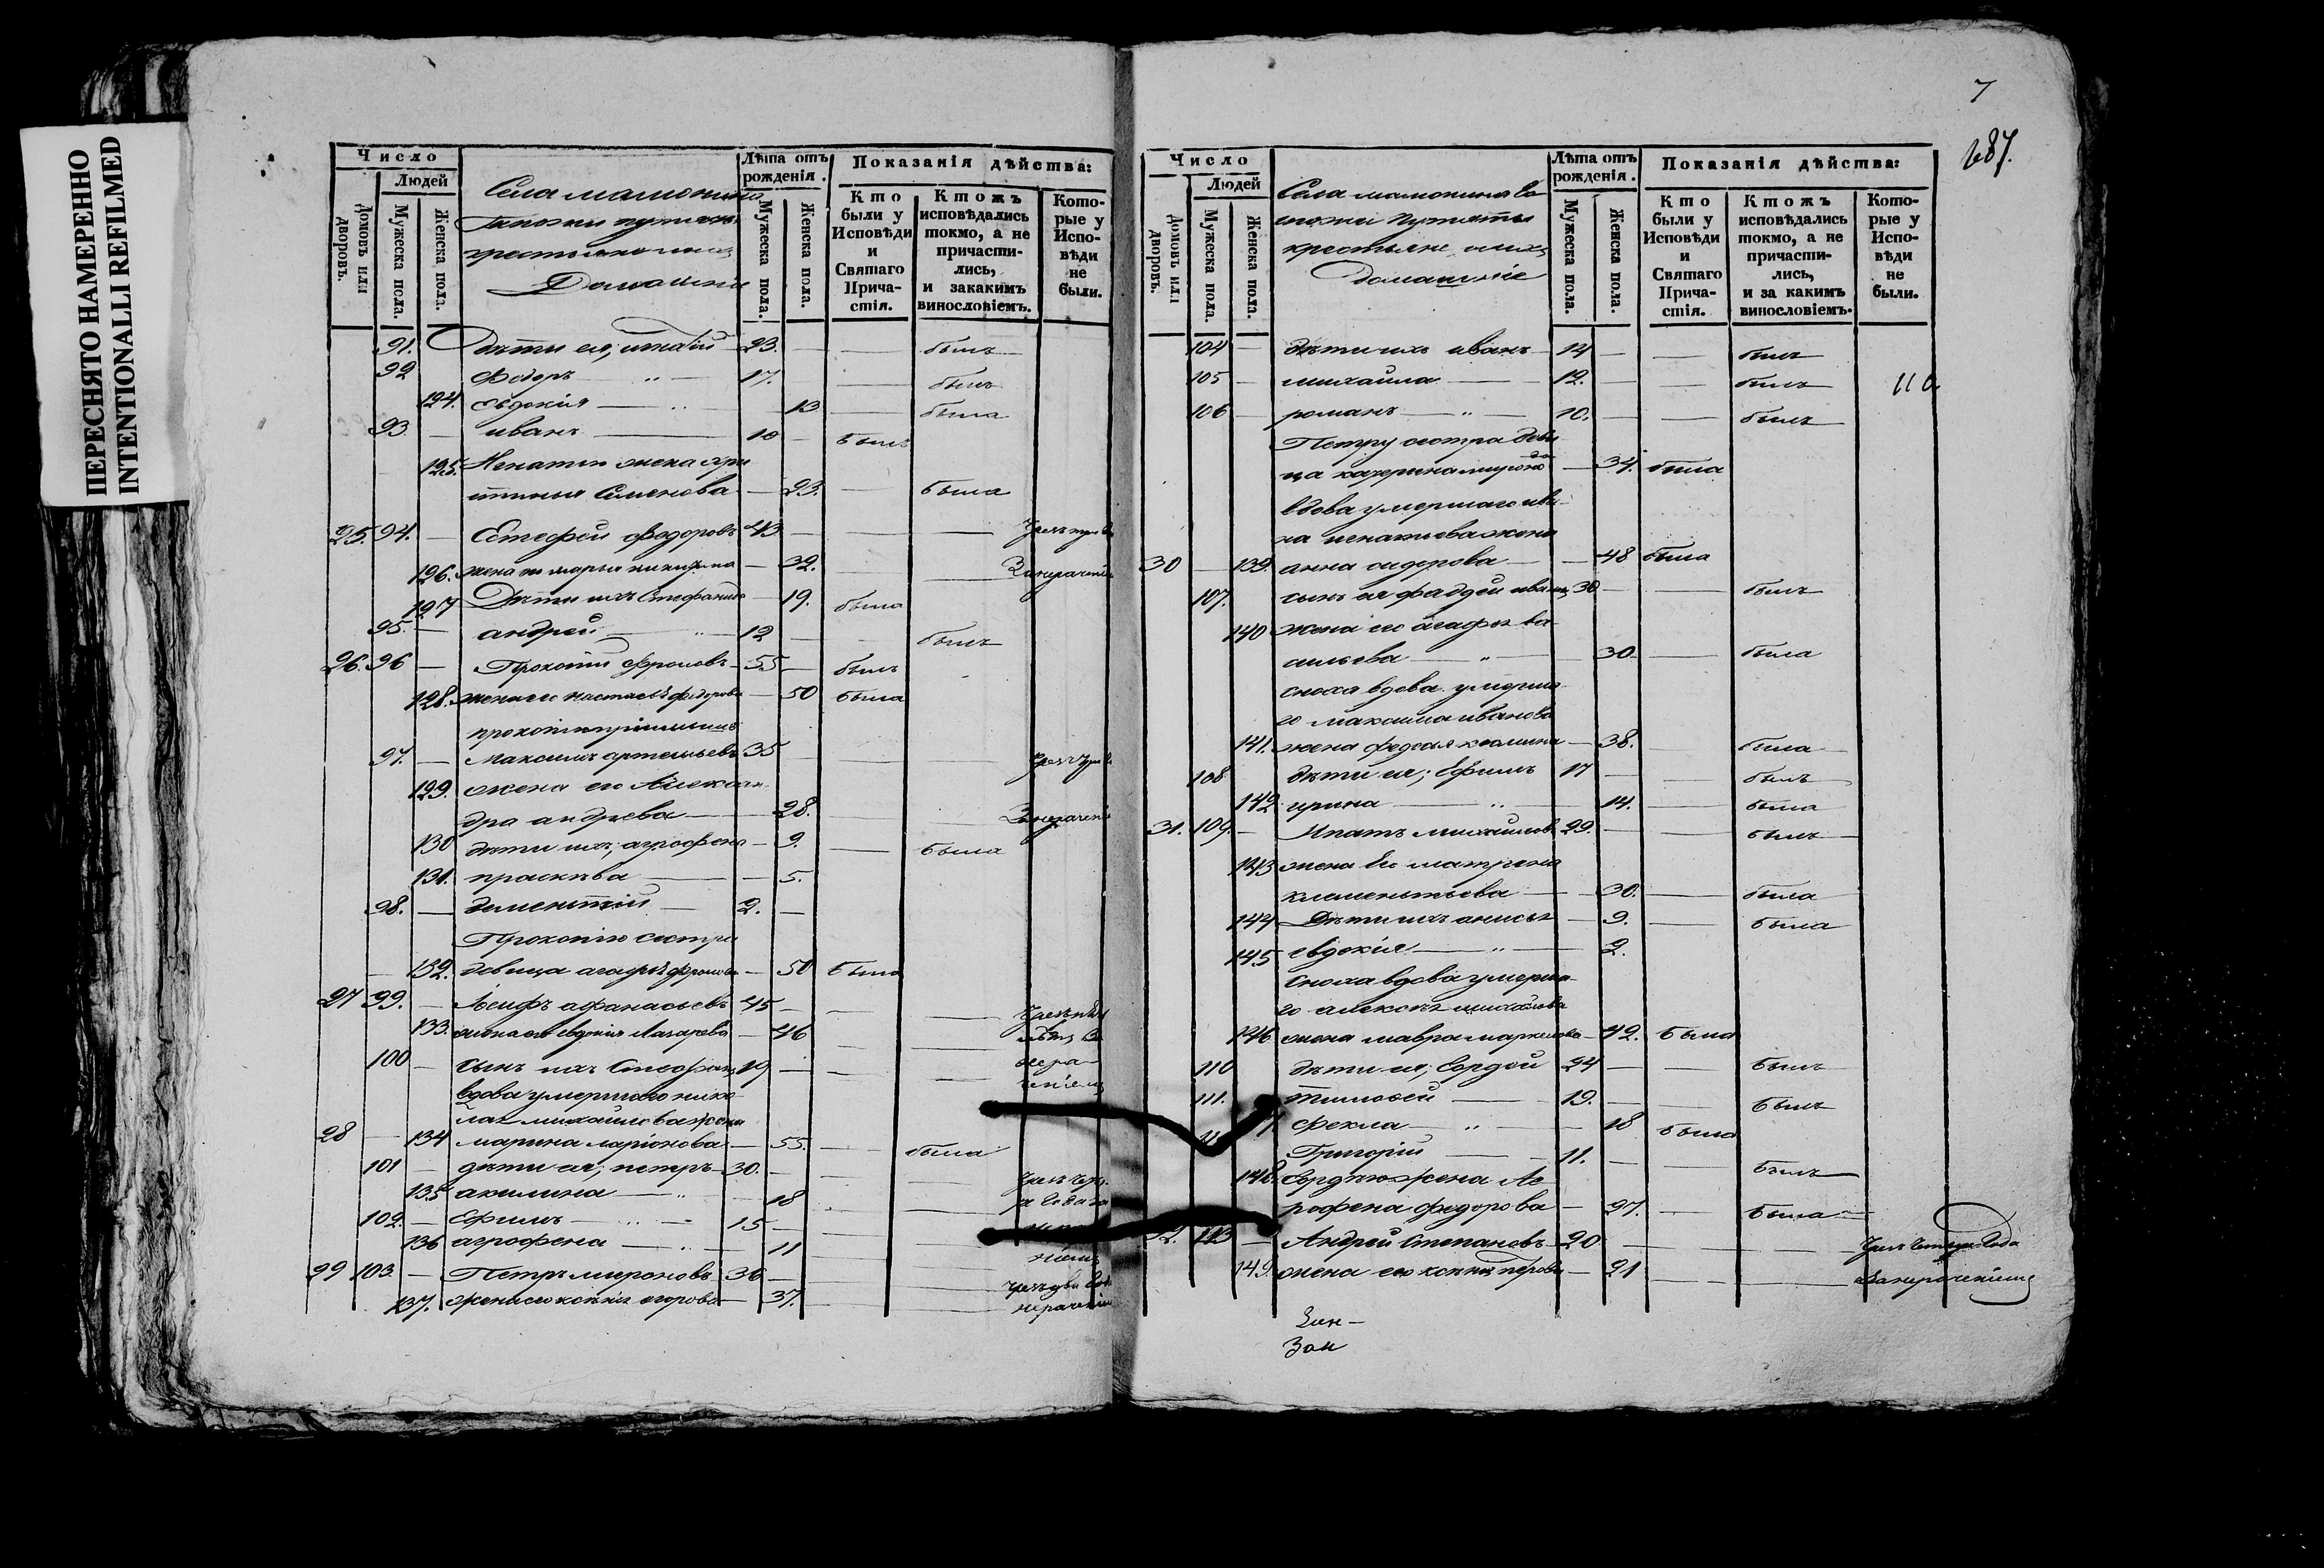 ПЕРЕСНЯТО НАМЕРЕННО
INTENTIONALLI REFILMED
7
687.
110
Число
Людей
Домовъ или дворовъ.
Мужеска пола.
Женска пола.
Села мамонина
крестьяне
Домашніе
Лѣта отъ рожденія.
Мужеска пола.
Женска пола.
Показанія дѣйства:
Кто были у Исповѣди и Святаго Прича-стія.
Ктожъ исповѣдались токмо, а не причасти-лись, и закакимъ винословіемъ.
Кото-рые у Испо-вѣди не были.
91. дѣти ея, 23. былъ
92 Федоръ 17. былъ
124. Евдокія 13 была
93. иванъ 10 былъ
125. Игнатія жена хри
стинья Семенова 23. была
25. 94. федоровъ 43
126. жена его марья никитина 32. Занераченіе
127 Дѣти ихъ Стефанида 19. была
95. андрей 12 былъ
26. 96 Прокопій фроловъ 55 былъ
128. жена его настасья федорова 50 была
97. максимъ артемьевъ 35
129. жена его Алексан
дра андреева 28. Занераченіе
130 дѣти ихъ; агрофена 9. была
131. прасковья 5.
98. дементій 2.
Прокопію сестра
132. девица агафья фролова 50 была
27 99. Іосифъ афанасьевъ 45
133. жена его евдокія Лазарева 46
100 сынъ ихъ Стефанъ 19
вдова умершаго нико
лая михайлова жена
28 134 марина ларіонова 55. была
101 дѣти ея; петръ 30.
135 акилина 18
102. Ефимъ 15
136 агрофена 11
29 103. Петръ мироновъ 36
137. жена его ксенія егорова 37.
Число
Людей
Домовъ или дворовъ.
Мужска пола.
Женска пола.
Села мамонина
крестьяне и ихъ
домашніе
Лѣта отъ рожденія.
Мужеска пола.
Женска пола.
Показанія дѣйства:
Кто были у Исповѣди и Святаго Прича-стія.
Ктожъ исповѣдались токмо, а не причасти-лись, и за какимъ винословіемъ.
Кото-рые у Испо-вѣди не были.
104 дѣти ихъ иванъ 14 былъ
105 михаила 12. былъ
106 романъ 10. былъ
Петру сестра деви
ца катерина миронова 34. была
вдова умершаго ива
на игнатьева жена
30 139. анна сидорова 48 была
107. сынъ ея фаддей ивановъ 30 былъ
140 жена его агафья ва
сильева 30 была
сноха вдова умерша
го максима иванова
141. жена федосья козмина 38. была
108 дѣти ея; Ефимъ 17 былъ
142 ирина 14. была
31. 109. Ипатъ михайловъ 29. былъ
143 жена его матрена
клементьева 30. была
144 Дѣти ихъ анисья 9. была
145 евдокія 2.
сноха вдова умерша
го алексѣя михайлова
146 жена мавра маркелова 42. была
110 дѣти ея; Сергей 24 былъ
111. тимофей 19. былъ
фекла 18 была
Григорій 11. былъ
148. Сергѣю жена аг
рофена федорова 27. была
113 Андрей Степановъ 20
149. жена его ксенія 21 Занераченіемъ
Зан